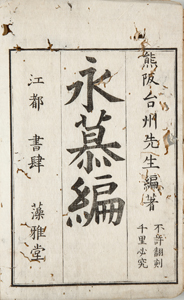 熊阪台州先生編著
不許翻刻
千里必究
永慕編
江都 書肆 藻雅堂